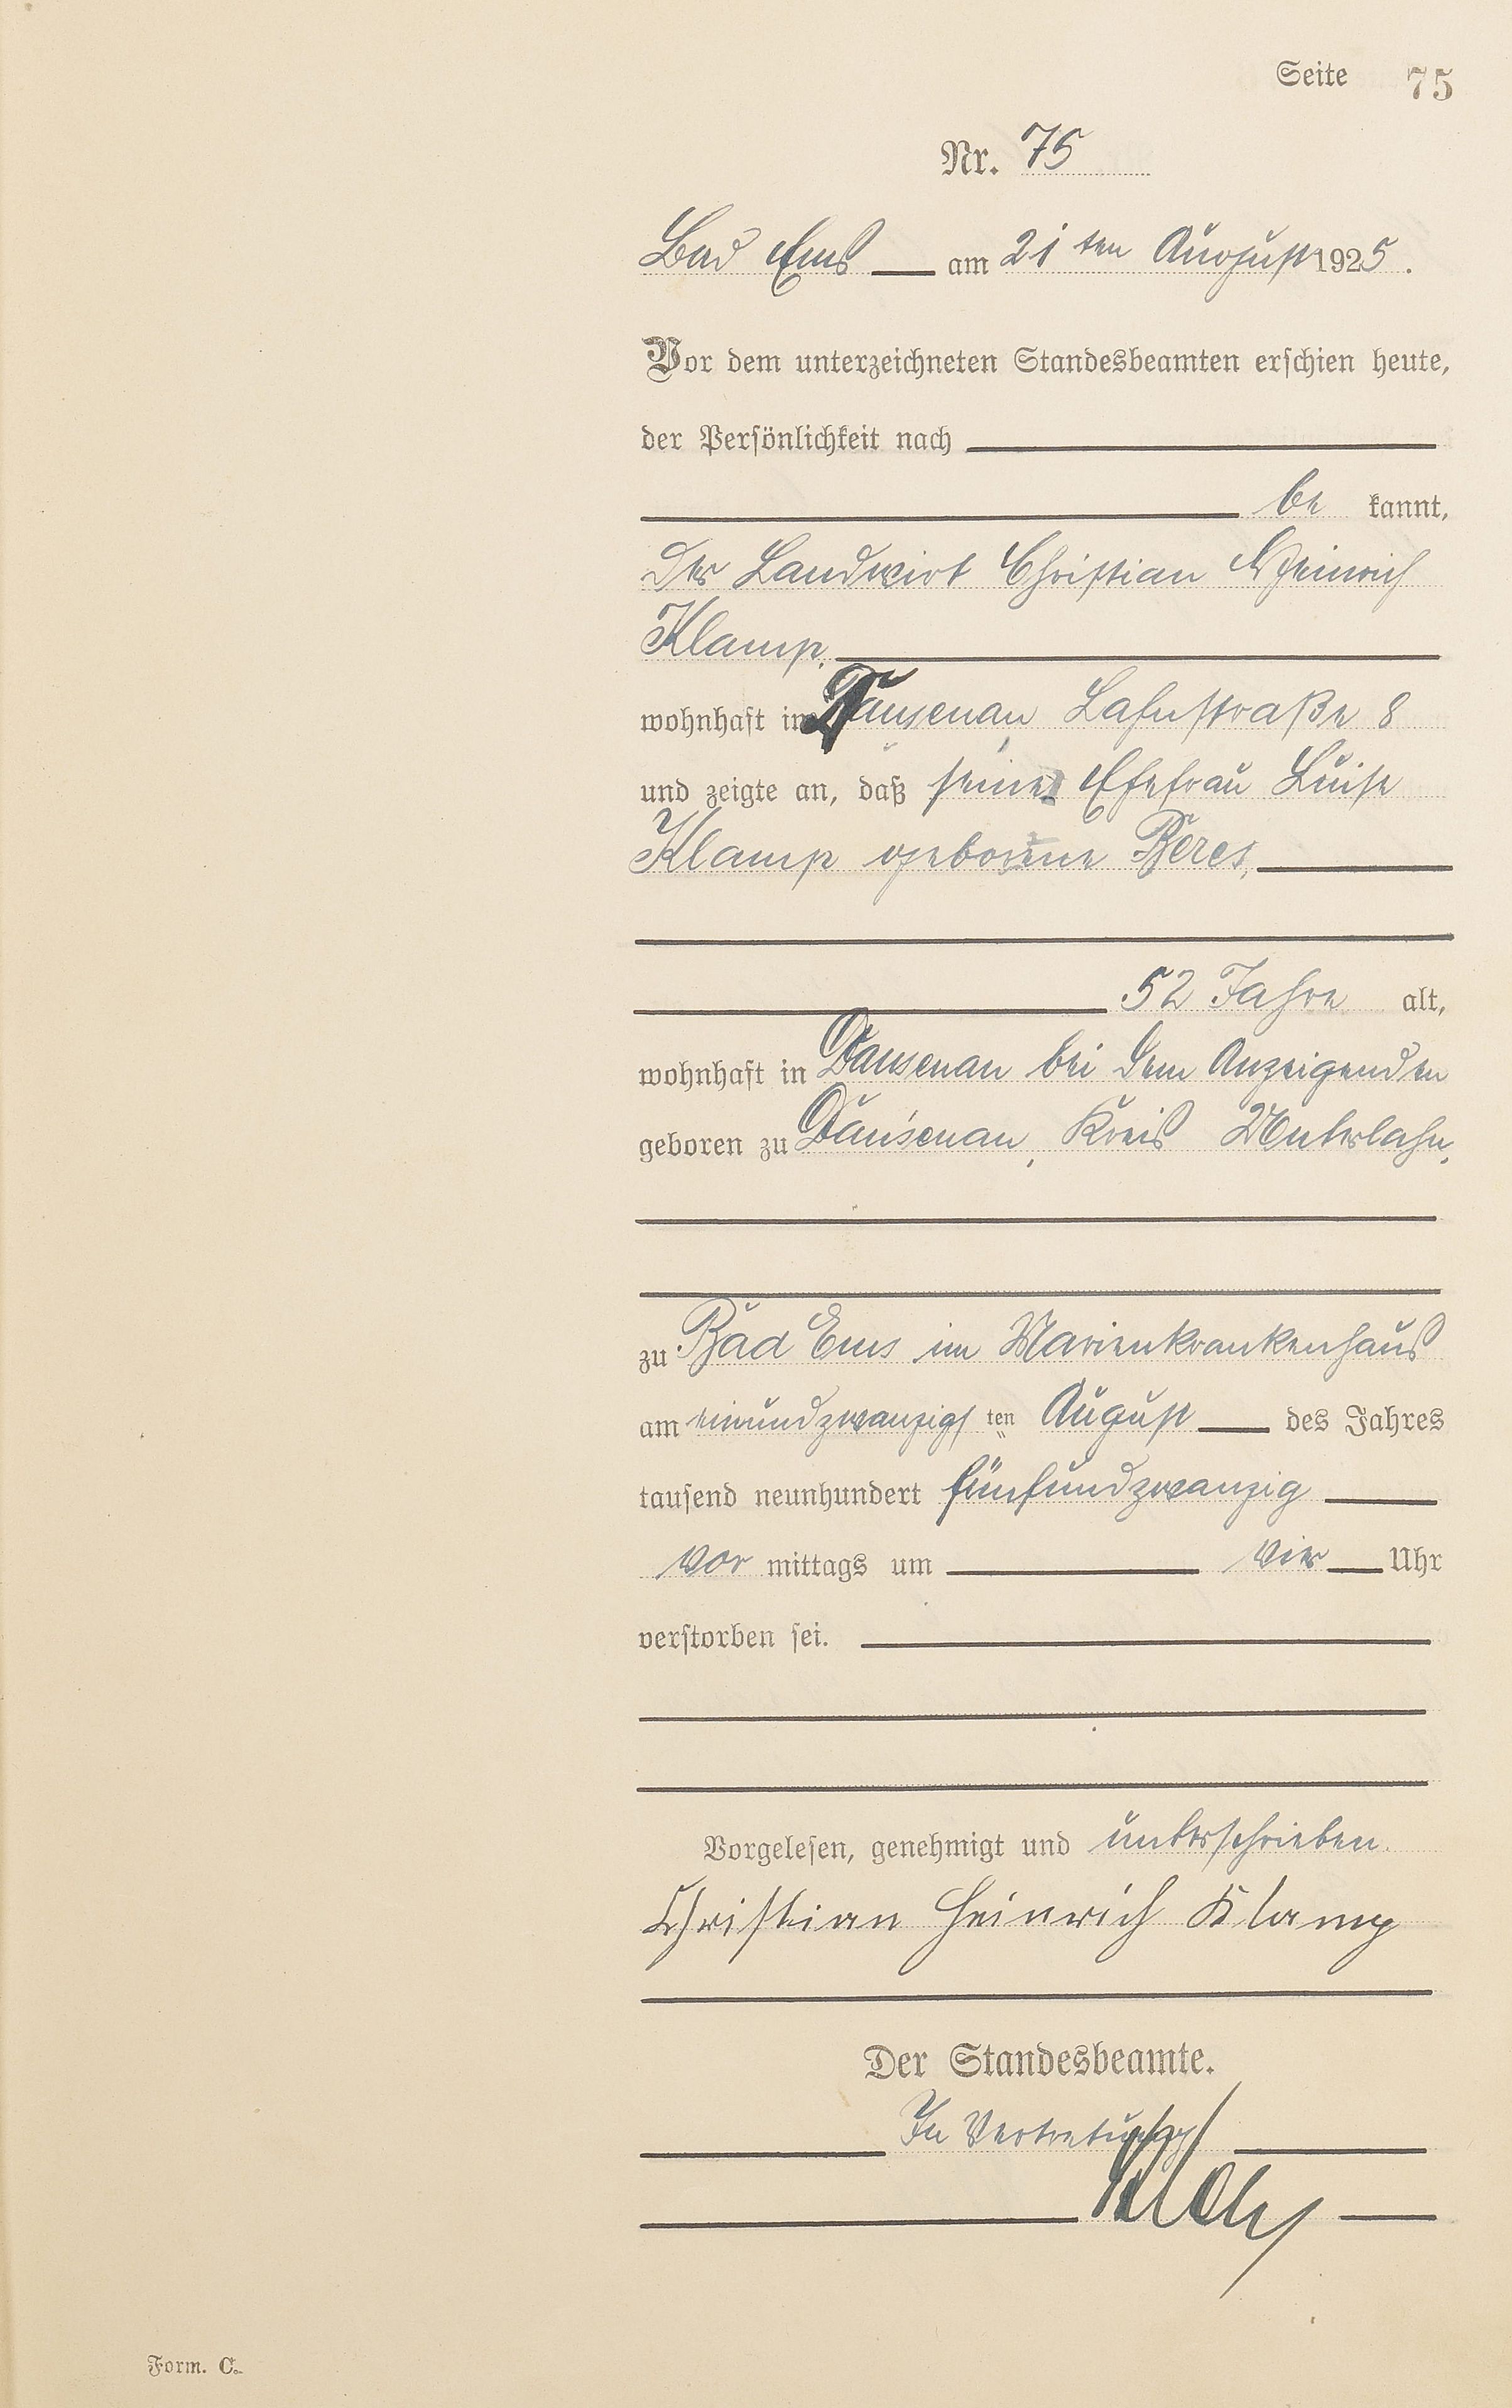 Seite 75
Nr. 75
Bad Ems am 21 ten August 1925.
Vor dem unterzeichneten Standesbeamten erschien heute,
der Persönlichkeit nach
be kannt,
der Landwirt Christian Heinrich
Klamp,
wohnhaft in Dausenau, Lahnstraße 8
und zeigte an, daß seine Ehefrau Luise
Klamp geborene Beres,
52 Jahre alt,
wohnhaft in Dausenau bei dem Anzeigenden
geboren zu Dausenau, Kreis Unterlahn,
zu Bad Ems im Marienkrankenhaus
am einundzwanzigs ten August des Jahres
tausend neunhundert fünfundzwanzig
vor mittags um vier Uhr
verstorben sei.
Vorgelesen, genehmigt und unterschrieben.
Christian Heinrich Klamp
Der Standesbeamte.
In Vertretung
Form. C.